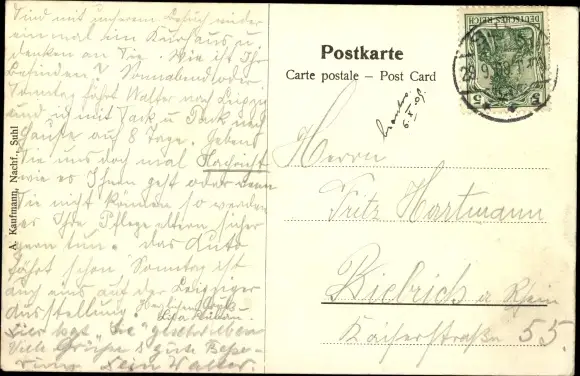 Sind mit unserem Besuch wieder
einmal im Kurhaus u
denken an Sie. Wie ist Ihr
Befinden? Sonnabend oder
Sonntag fährt Walter nach Leipzig
und ich mit Sack u Pack nach
Hause auf 8 Tage. Geben
Sie uns doch mal Nachricht
wie es Ihnen geht oder wenn
Sie nicht können so werden
es Ihre Pflegeeltern sicher
gern tun. Das Auto
fährt schon Sonntag ist
auch eins auf der Leipziger
Ausstellung. Herzlichen Gruß
Hier hat "Sie" geschrieben
Viele Grüße & gute Besse-
rung Dein Walter.
A. Kaufmann, Nachf., Suhl
Postkarte
Carte postale – Post Card
DEUTSCHES REICH
5 5
6. X. 09.
Herrn
Fritz Hartmann
Biebrich a Rhein
Kaiserstraße 55.